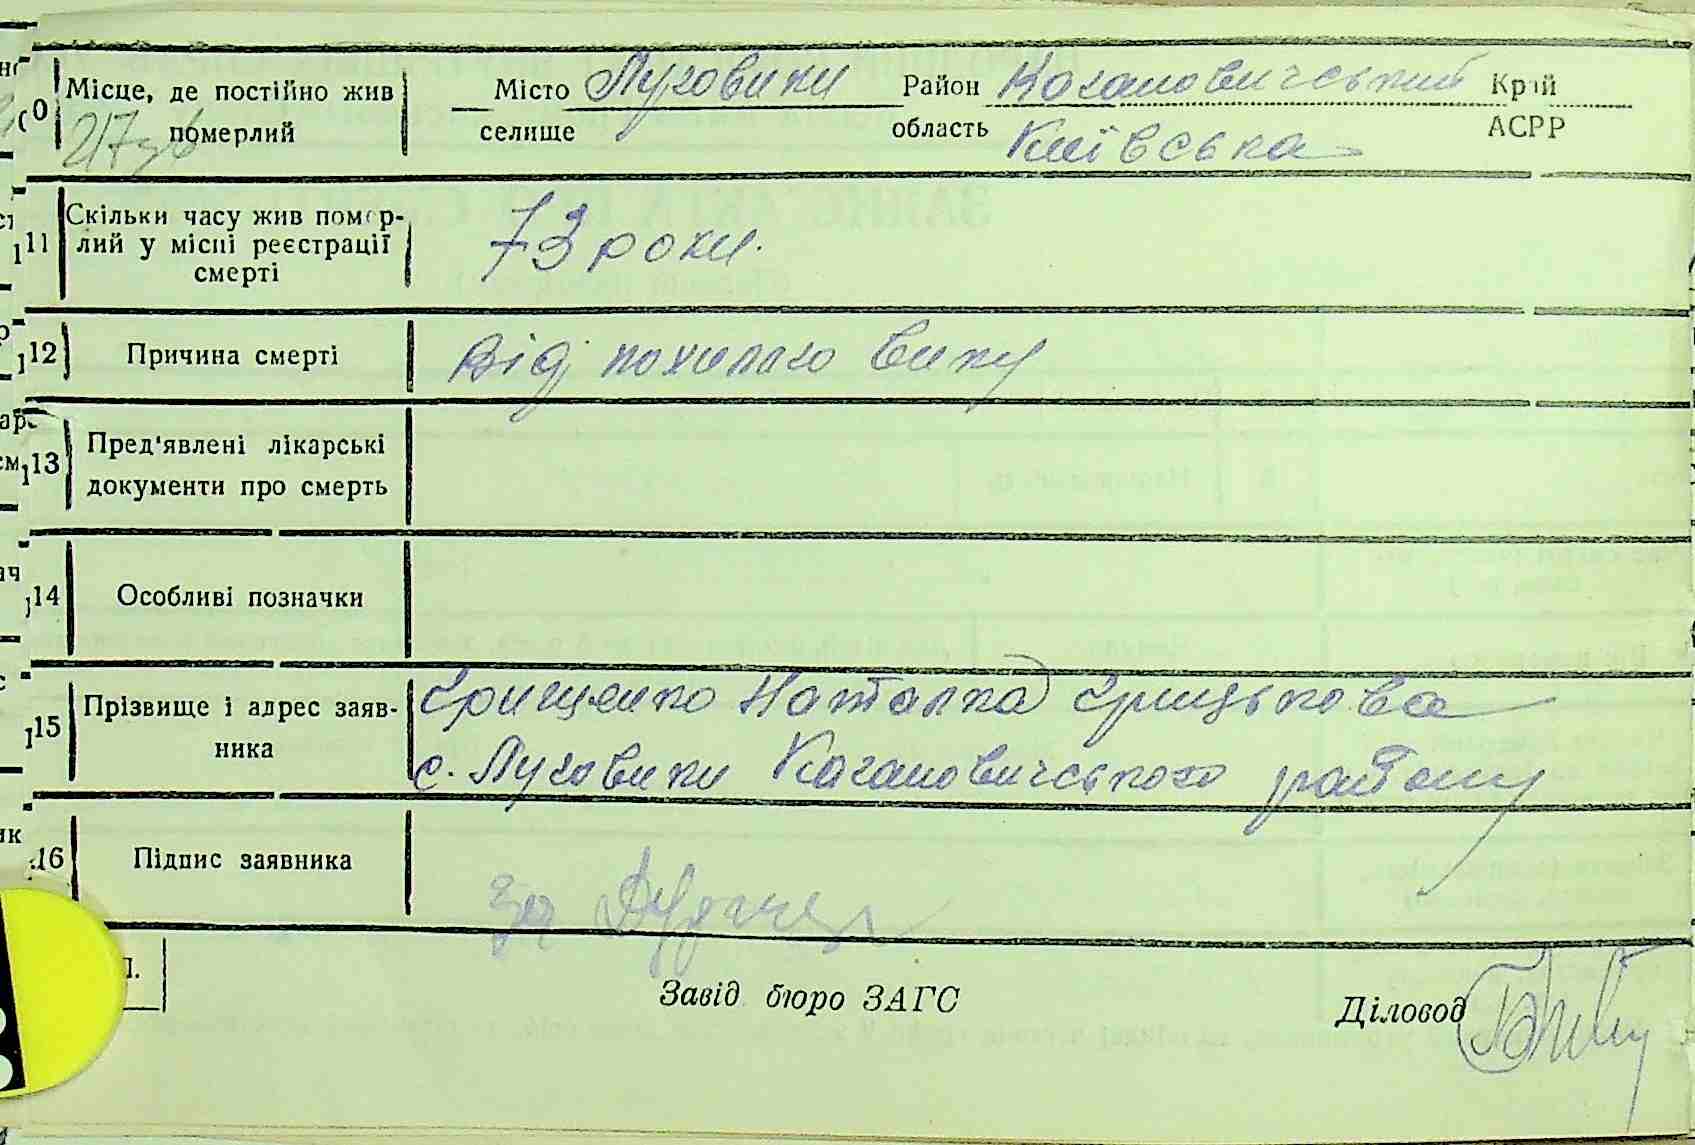 10 Місце, де постійно жив Місто Луговики Район Кагановичський Край
померлий селище область Київська АСРР
11 Скільки часу жив помер-
лий у місці реєстрації 73 роки.
смерті
12 Причина смерті Від похилого вику
13 Пред'явлені лікарські
документи про смерть
14 Особливі позначки
15 Прізвище і адрес заяв- Грищенко Наталка Грицькова
ника с. Луговики Кагановичського району
16 Підпис заявника За
Завід. бюро ЗАГС Діловод